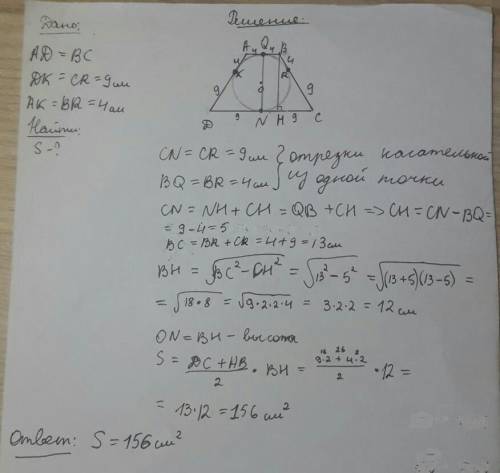 Дано:
AD = BC
DK = CR = 9см
AK = BR = 4см
Найти:
S - ?
Решение:
A 4 Q 4 B
4 4
K R
9 O 9
D 9 N H 9 C
CN = CR = 9см
BQ = BR = 4см
отрезки касательной
из одной точки
CN = NH + CH = QB + CH => CH = CN - BQ =
= 9 - 4 = 5
BC = BR + CR = 4 + 9 = 13см
BH = √BC² - CH² = √13² - 5² = √(13+5)(13-5) =
= √18·8 = √9·2·2·4 = 3·2·2 = 12см
QN = BH - высота
S = DC + AB / 2 · BH = 9·2 + 4·2 / 2 · 12 =
18 26 8
= 13·12 = 156 см²
Ответ: S = 156 см²